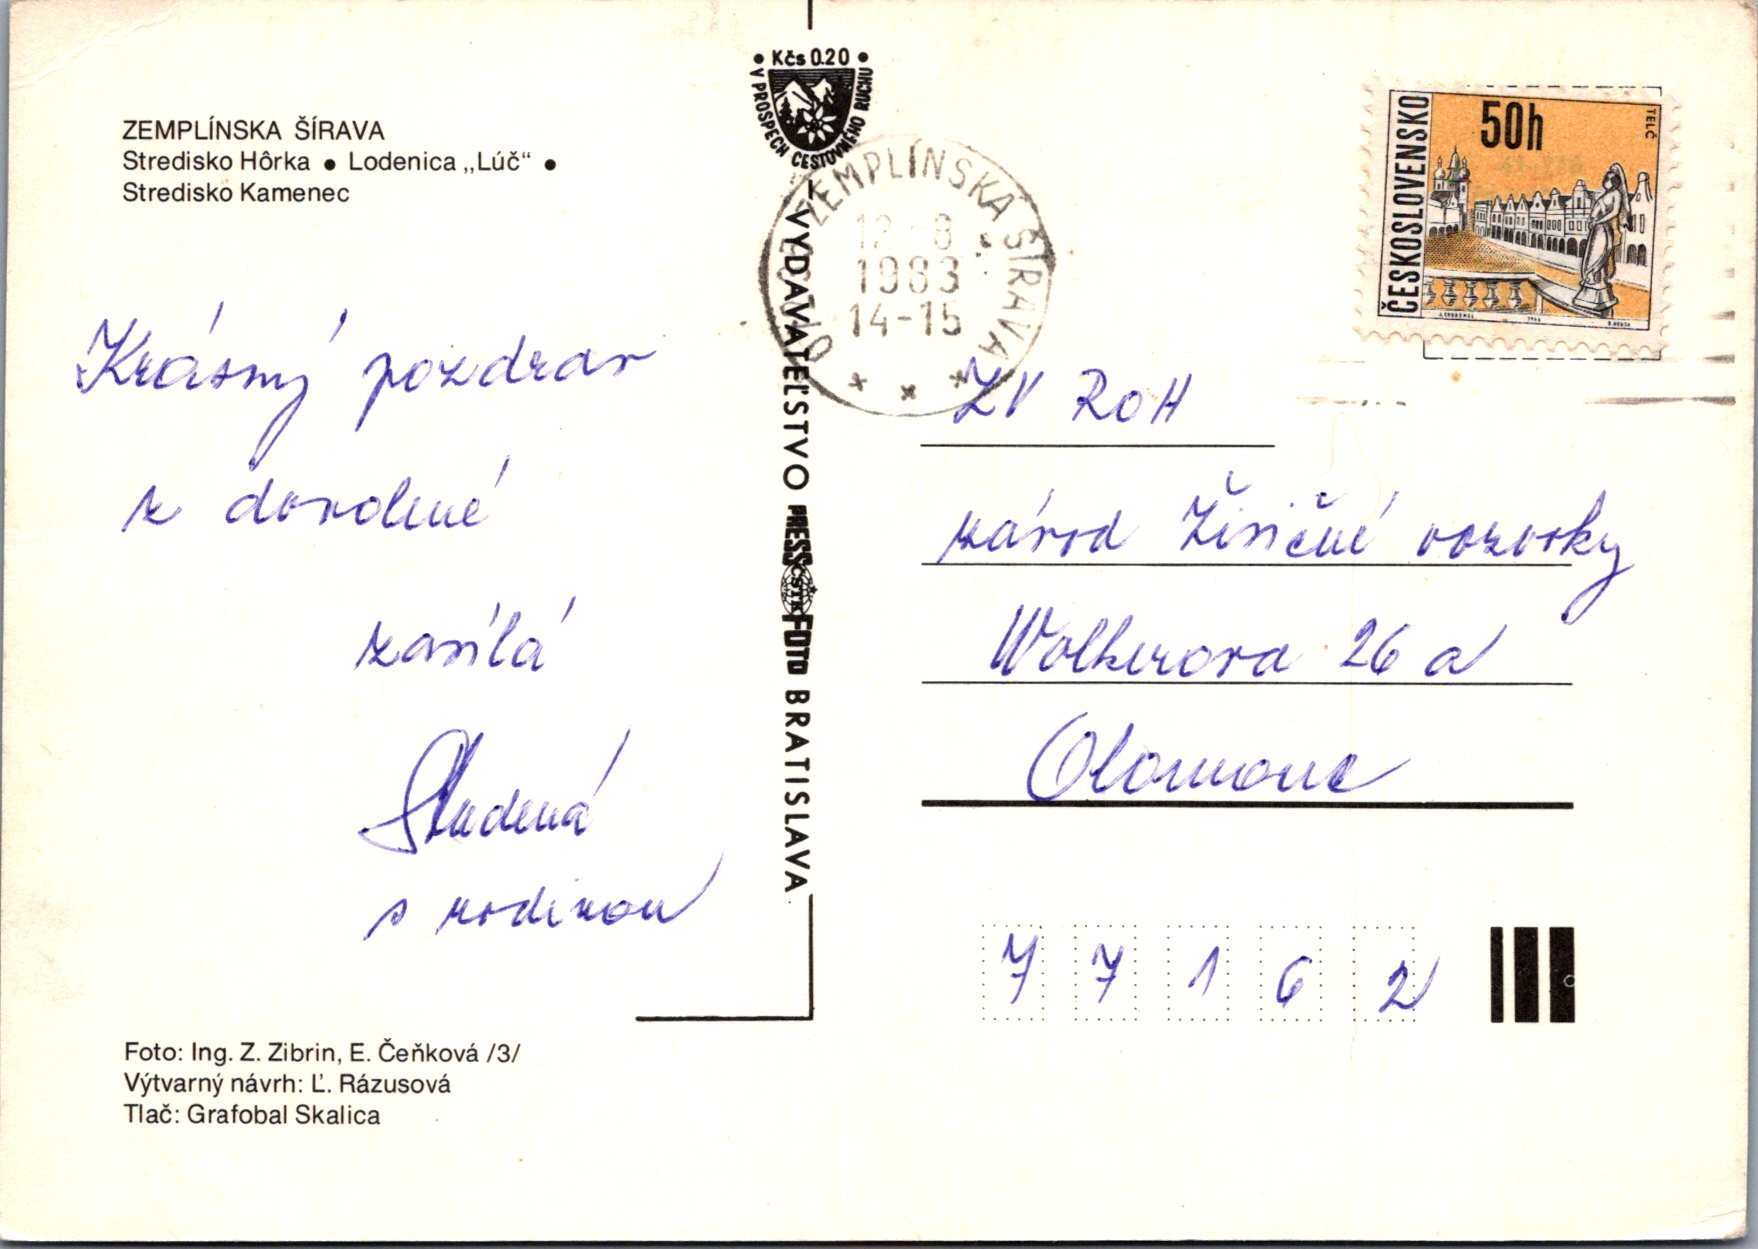 ZEMPLÍNSKA ŠÍRAVA
Stredisko Hôrka ● Lodenica „Lúč“ ●
Stredisko Kamenec
Krásný pozdrav
z dovolené
zasílá
Studená
s rodinou
Foto: Ing. Z. Zibrin, E. Čeňková /3/
Výtvarný návrh: Ľ. Rázusová
Tlač: Grafobal Skalica
• Kčs 0.20 •
V PROSPECH CESTOVNÉHO RUCHU
VYDAVATEĽSTVO PRESSFOTO BRATISLAVA
ČSTK
ZEMPLÍNSKA ŠÍRAVA
12.-8
1983
14-15
ČESKOSLOVENSKO
50h
TELČ
1966
ZV ROH
závod Živičné vozovky
Wolkerova 26 a
Olomouc
77162